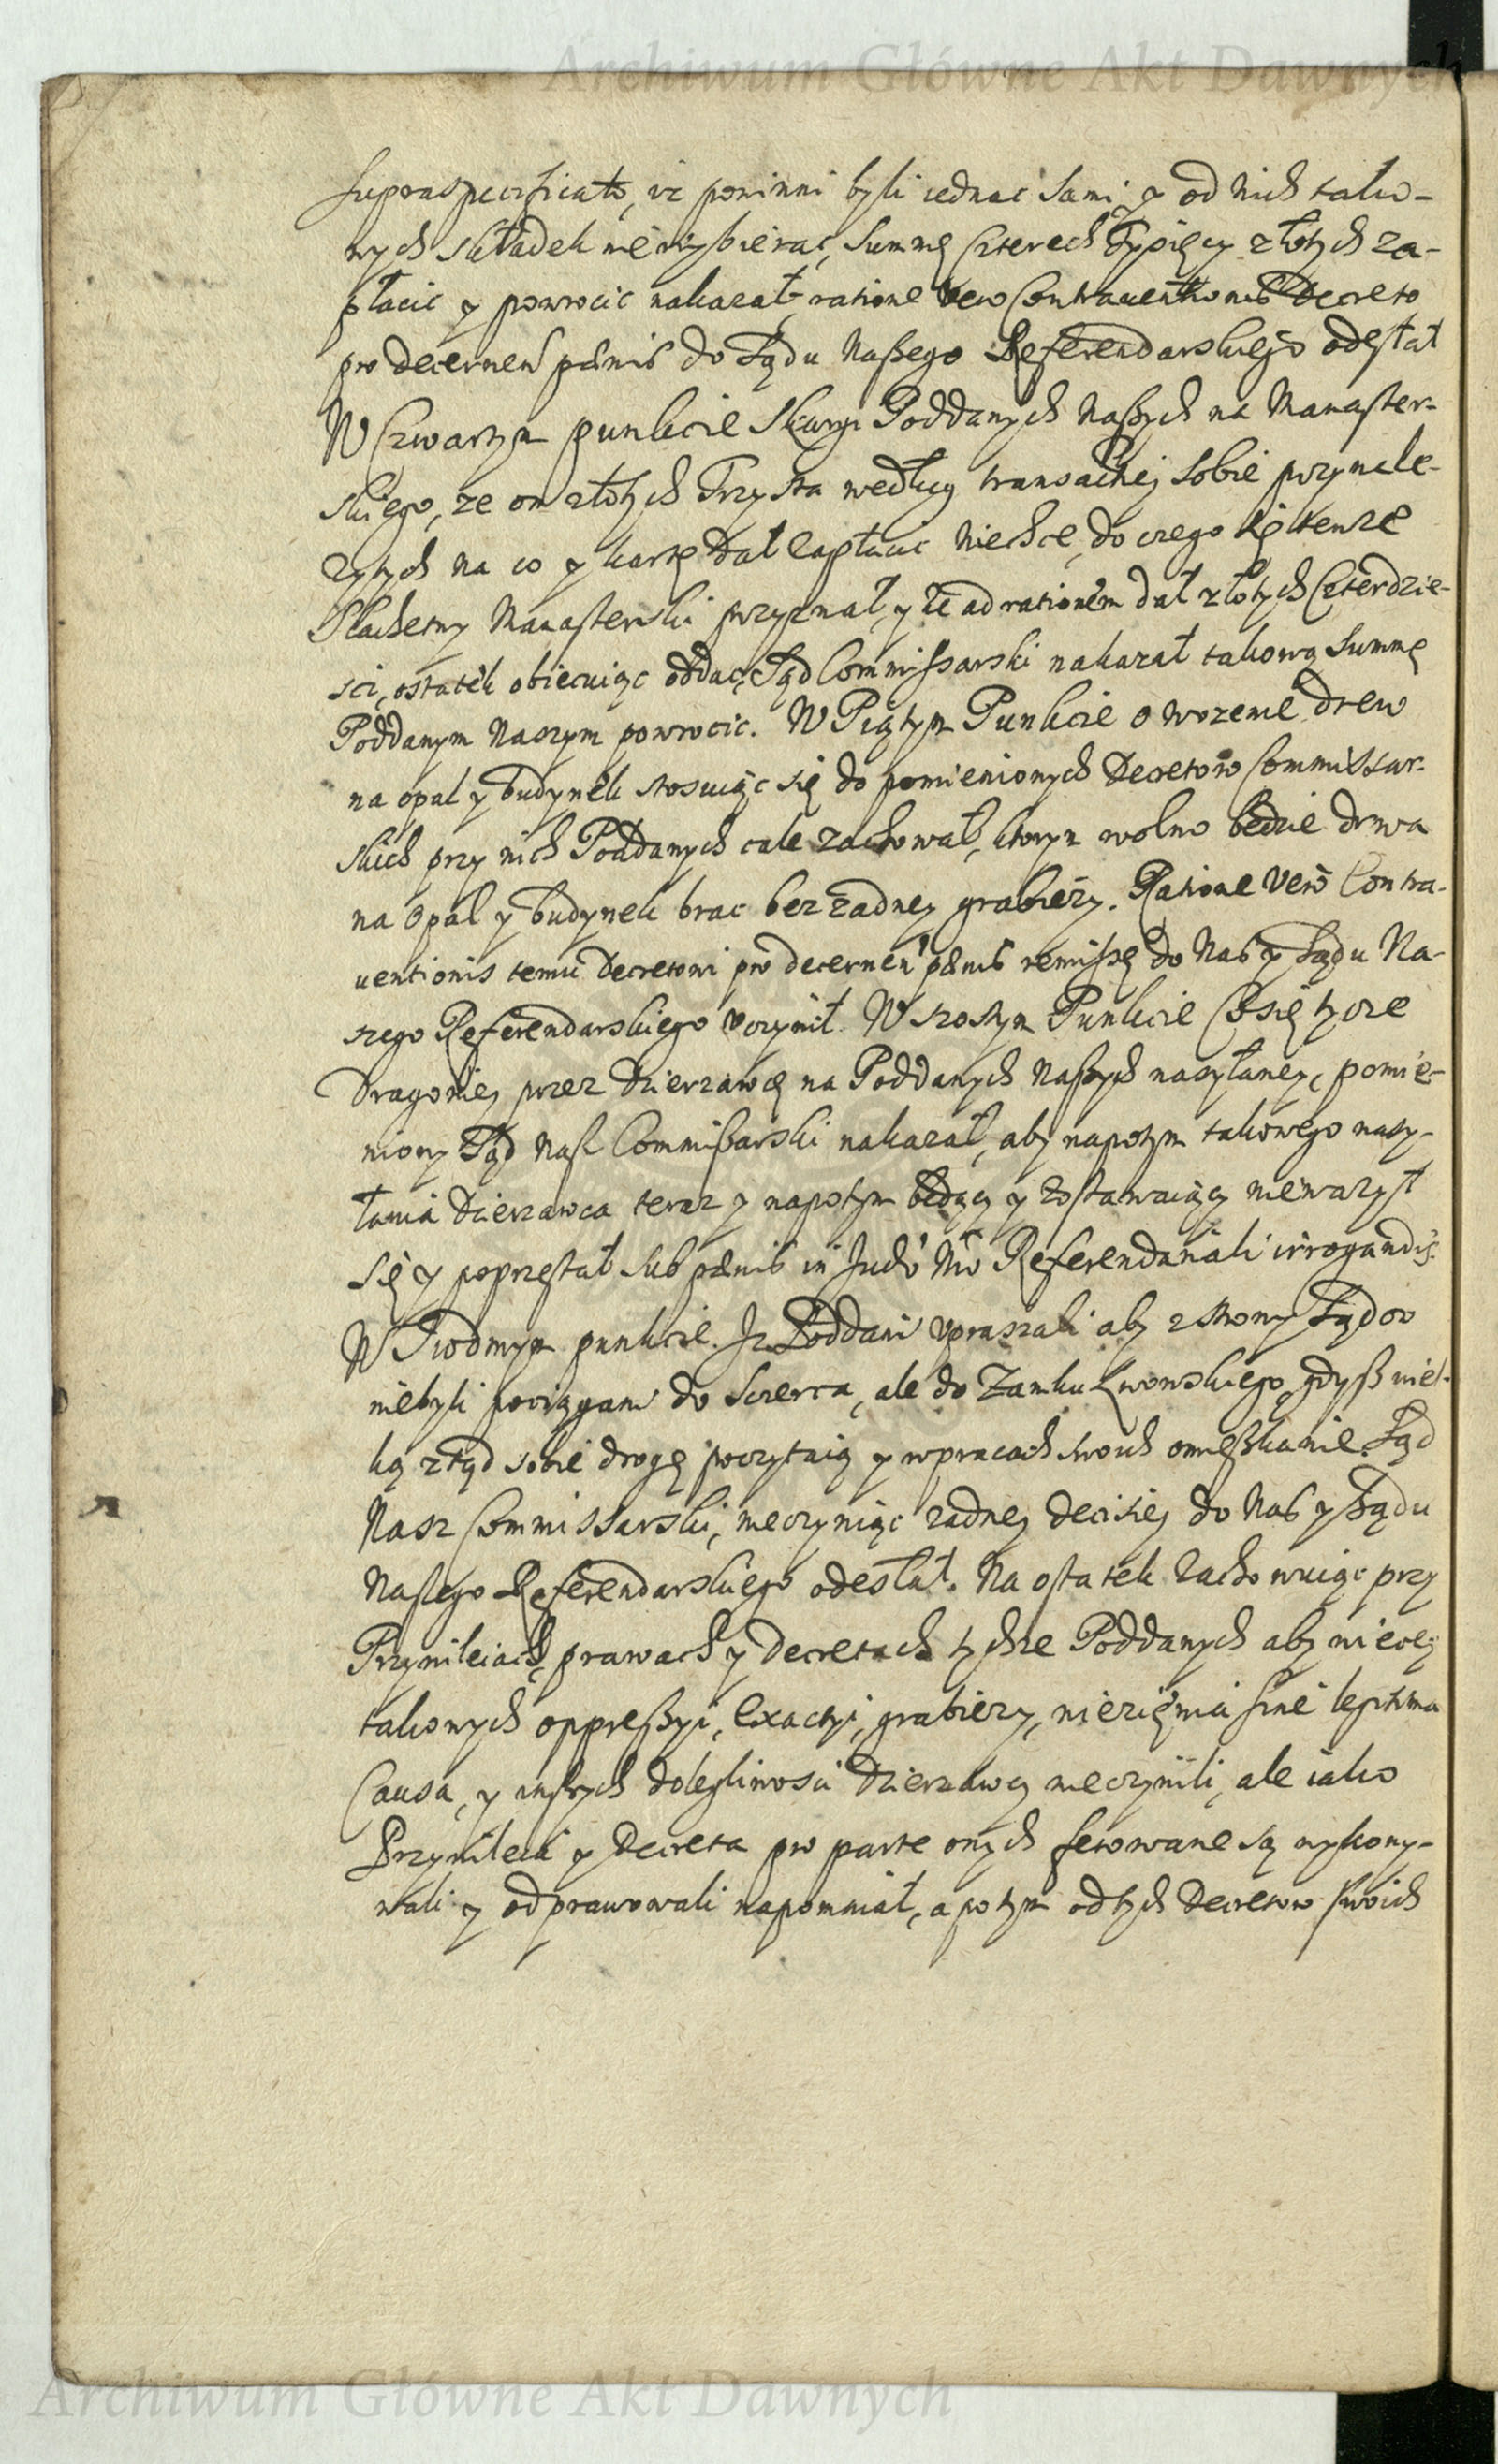 Archiwum Główne Akt Dawnych
supraspecificato, iz powinni byli iednać sami, y od nich tako-
wych składek niewybierać, summę czterech Tysięcy złotych za-
płacic y powrocic nakazał, ratione vero Contrauentionis Decreto
pro decernen pænis do Sądu Naßego Referendarskiego odesłał
W Czwartym punkcie Skargi Poddanych Naßych na Manaster-
skiego, ze on złotych Trzysta według transactiej sobie przynale-
zytych na co y kartę dał zapłacic niechce, do czego się tenze
Slachetny Manasterski przyznał, y ze ad rationem dał złotych Czterdzie-
sci, ostatek obiecuiąc oddac, Sąd Commißarski nakazał takową summę
Poddanym Naszym powrocic. W Piątym Punkcie o wozenie drew
na opał y budynek stosuiąc się do pomienionych Decretow Commissar-
skich przy nich Poddanych cale zachował, ktorym wolno bedzie drwa
na opał y budynek brac bez zadney grabiezy. Ratione vero Contra-
uentionis temu Decretowi pro decernen pænis remissę do Nas y Sądu Na-
szego Referendarskiego vczynił. W szostym Punkcie Co się tycze
Dragoniey przez Dzierzawcę na Poddanych Naßych nasyłaney, pomie-
niony Sąd Naß Commißarski nakazał, aby napotym takowego nasy-
łania Dzierzawca teraz y napotym będący y zostawaiący niewazył
się y poprzestał sub pænis in Judo Nro Referendariali irrogandis.
W Siodmym punkcie. Iz Poddani vpraszali aby z strony Sądow
niebyli pociągani do Szczerca, ale do Zamku Lwowskiego, gdyß wiel-
ką ztąd sobie drogę poczytaią y w pracach swoich omeßkanie. Sąd
Nasz Commissarski, nieczyniąc zadney decisiey do Nas y Sądu
Naßego Referendarskiego odesłał. Na ostatek zachowuiąc przy
Przywileiach, prawach y Decretach tychze Poddanych aby wiecey
takowych oppreßyi, Exactyi, grabiezy, więzienia sine legitima
Causa, y inßych dolegliwosci Dzierzawcy nieczynili, ale iako
Przywileia y Decreta pro parte onych ferowane są wykony-
wali y odprawowali napomniał, a potym od tych Decretow swoich
Archiwum Główne Akt Dawnych